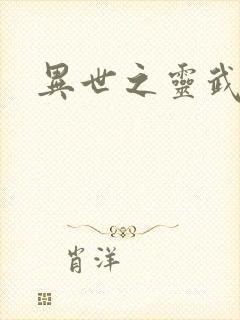 異世之靈武
肖洋